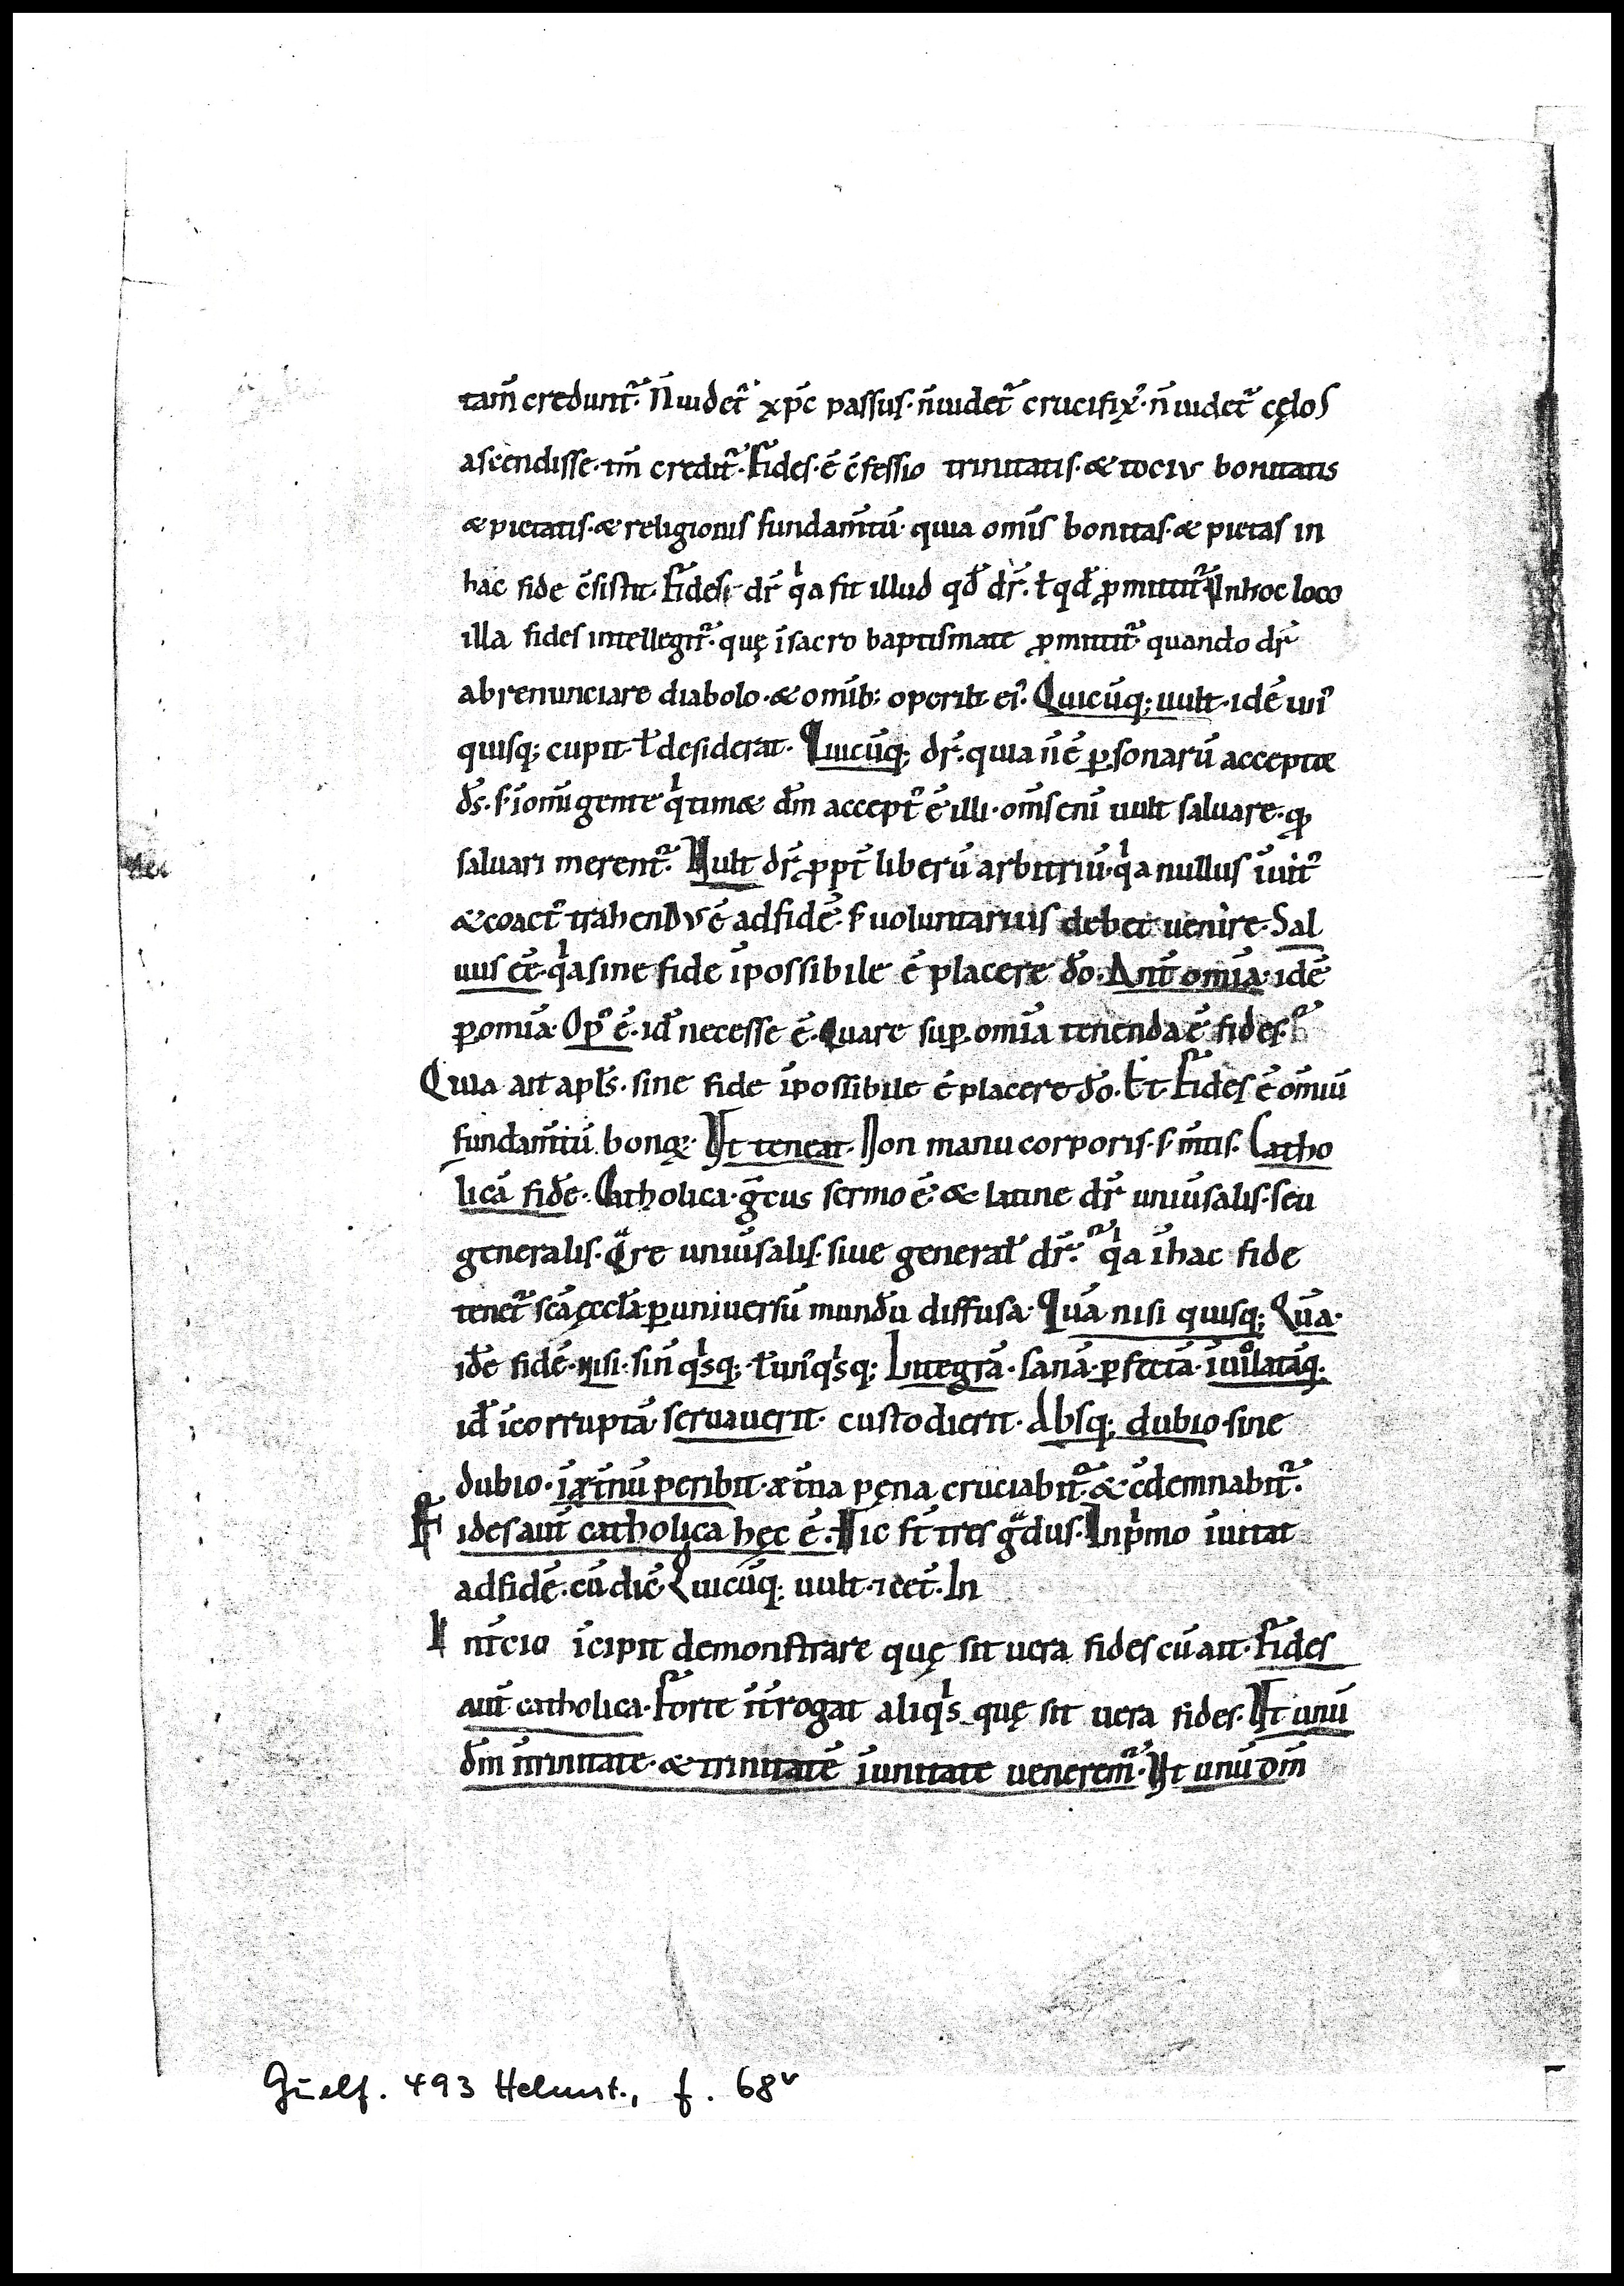 tam̅ credunt᷑. N̅ uidet᷑ xp̅c passus. n̅ uidet᷑ crucifix᷒. n̅ uidet᷑ cęlos
ascendisse. tm̅ credit᷑. Fides. ē c̅fessio trinitatis. & tociꝰ bonitatis
& pietatis. & religionis fundam̅tū. quia om̅is bonitas. & pietas in
hac fide c̅sistit. Fides dr̅ qͥa fit illud qđ dr̅. ł qđ ꝓmittit᷑. In hoc loco
illa fides intellegit᷑. quę ī sacro baptismate ꝓmittit᷑ quando dr̅
abrenunciare diabolo. & om̅ib; operib; ei᷒. Quicūq; uult. idē uni᷒
quisq; cupit ł desiderat. Quicūq; dr̅. quia n̅ ē ꝑsonarū acceptor
ds̅. s; ī om̅i gente qͥ timet dm̅ accept᷒ ē illi. om̅s eni̅ uult saluare. qui
saluari merent᷑. Uult dr̅ ꝓpt̅ liberū arbitriū. qͥa nullus īuit᷒
& coact᷒ trahendꝰ ē ad fidē. s; uoluntarius debet uenire. Sal
uus ēē. qͥa sine fide īpossibile ē placere do̅. Ant̅ om̅ia. idē
ꝑ om̅ia. Op᷒ ē. id̅ necesse ē. Quare suꝑ om̅ia tenenda ē fides.
Quia ait apl̅s. sine fide īpossibile ē placere do̅. Et Fides ē om̅iū
fundam̅tū bonoꝝ. Ut teneat. Non manu corporis. s; m̅tis. Catho
licā fidē. Catholica. gͬcus sermo ē. & latine dr̅ uniu̅salis. seu
generalis. Qͣre uniu̅salis. siue general̅ dr̅. qͥa ī hac fide
tenet᷑ sc̅a ęccl̅a ꝑ uniuersū mundū diffusa. Quā nisi quisq; Quā.
idē fidē. nisi. sin̅ qͥsq; ł un᷒qͥsq; Integrā. sanā. ꝑfectā. īuiͦlatāq;
id̅ īcorruptā seruauerit. custodierit. Absq; dubio. sine
dubio. ī ęt̅nū peribit. ęt̅na pęna cruciabit᷑. & c̅demnabit᷑.
Fides aut̅ catholica hęc ē. Hic st̅ tres gͣdus. In pͥmo īuitat
ad fidē. cū dic̅. Quicūq; uult. ⁊ cet̅. In
Int̅cio īcipit demonstrare quę sit uera fides cū ait. Fides
aut̅ catholica. Forte īt̅rogat aliqͥs quę sit uera fides. Ut unū
dm̅ ī trinitate. & trinitatē ī unitate uenerem᷑. Ut unū dm̅
Guelf. 493 Helmst., f. 68v